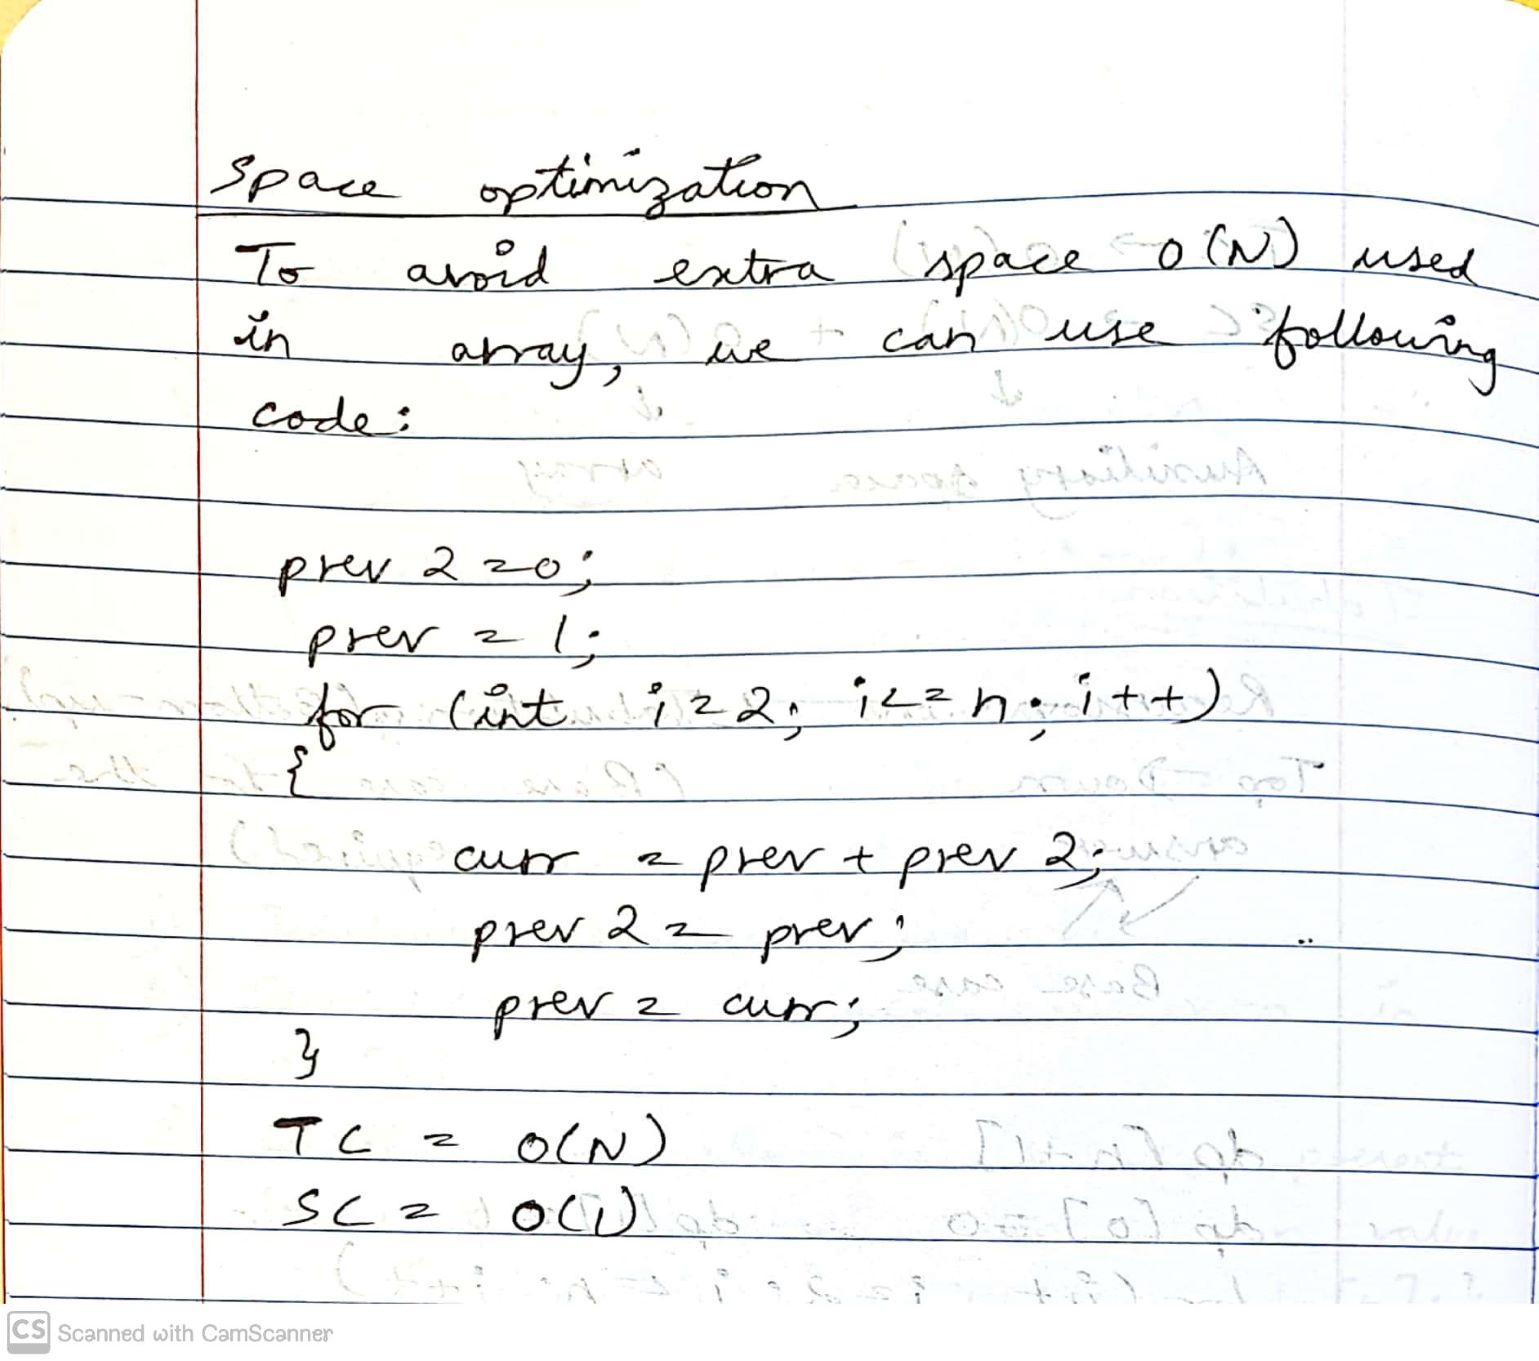 Space optimization
To avoid extra space O(N) used
in array, we can use following
code:
prev 2 = 0;
prev = 1;
for (int i = 2; i <= n; i++)
{
curr = prev + prev 2;
prev 2 = prev;
prev = curr;
}
TC = O(N)
SC = O(1)
CS Scanned with CamScanner